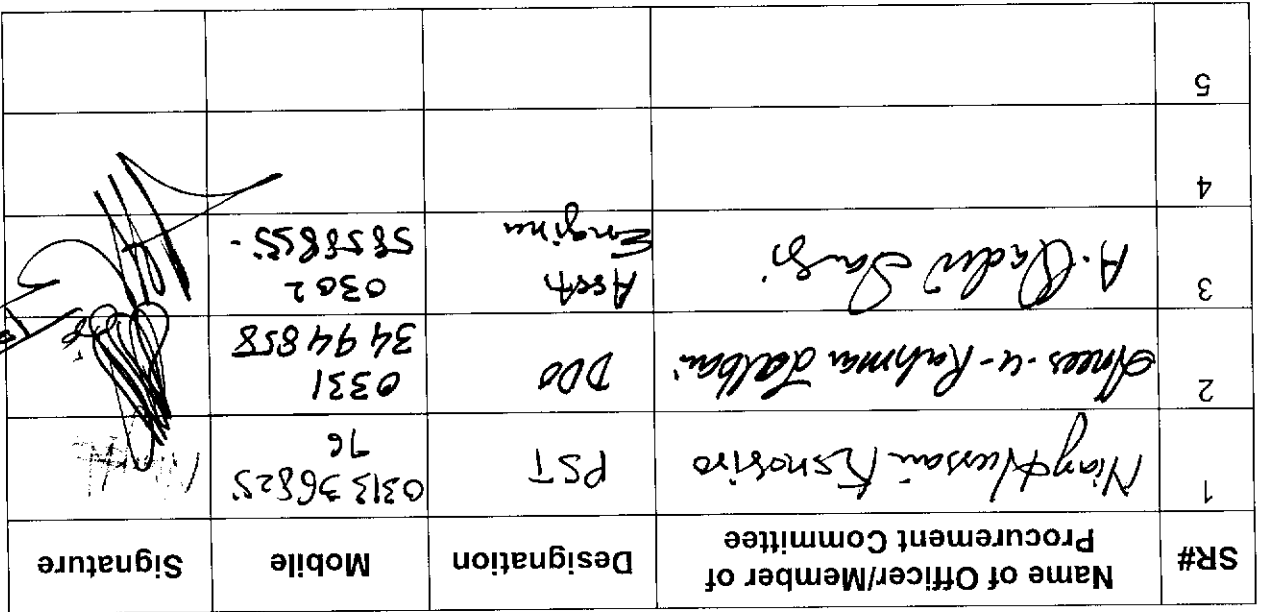 SR#
Name of Officer/Member of
Procurement Committee
Designation
Mobile
Signature
1
Niaz Hussain
PST
0313 36825
76
2
Anees-u-Rahman
DDO
0331
34 94 858
3
A. Qadir
Asstt
Engineer
0302
5858855-
4
5